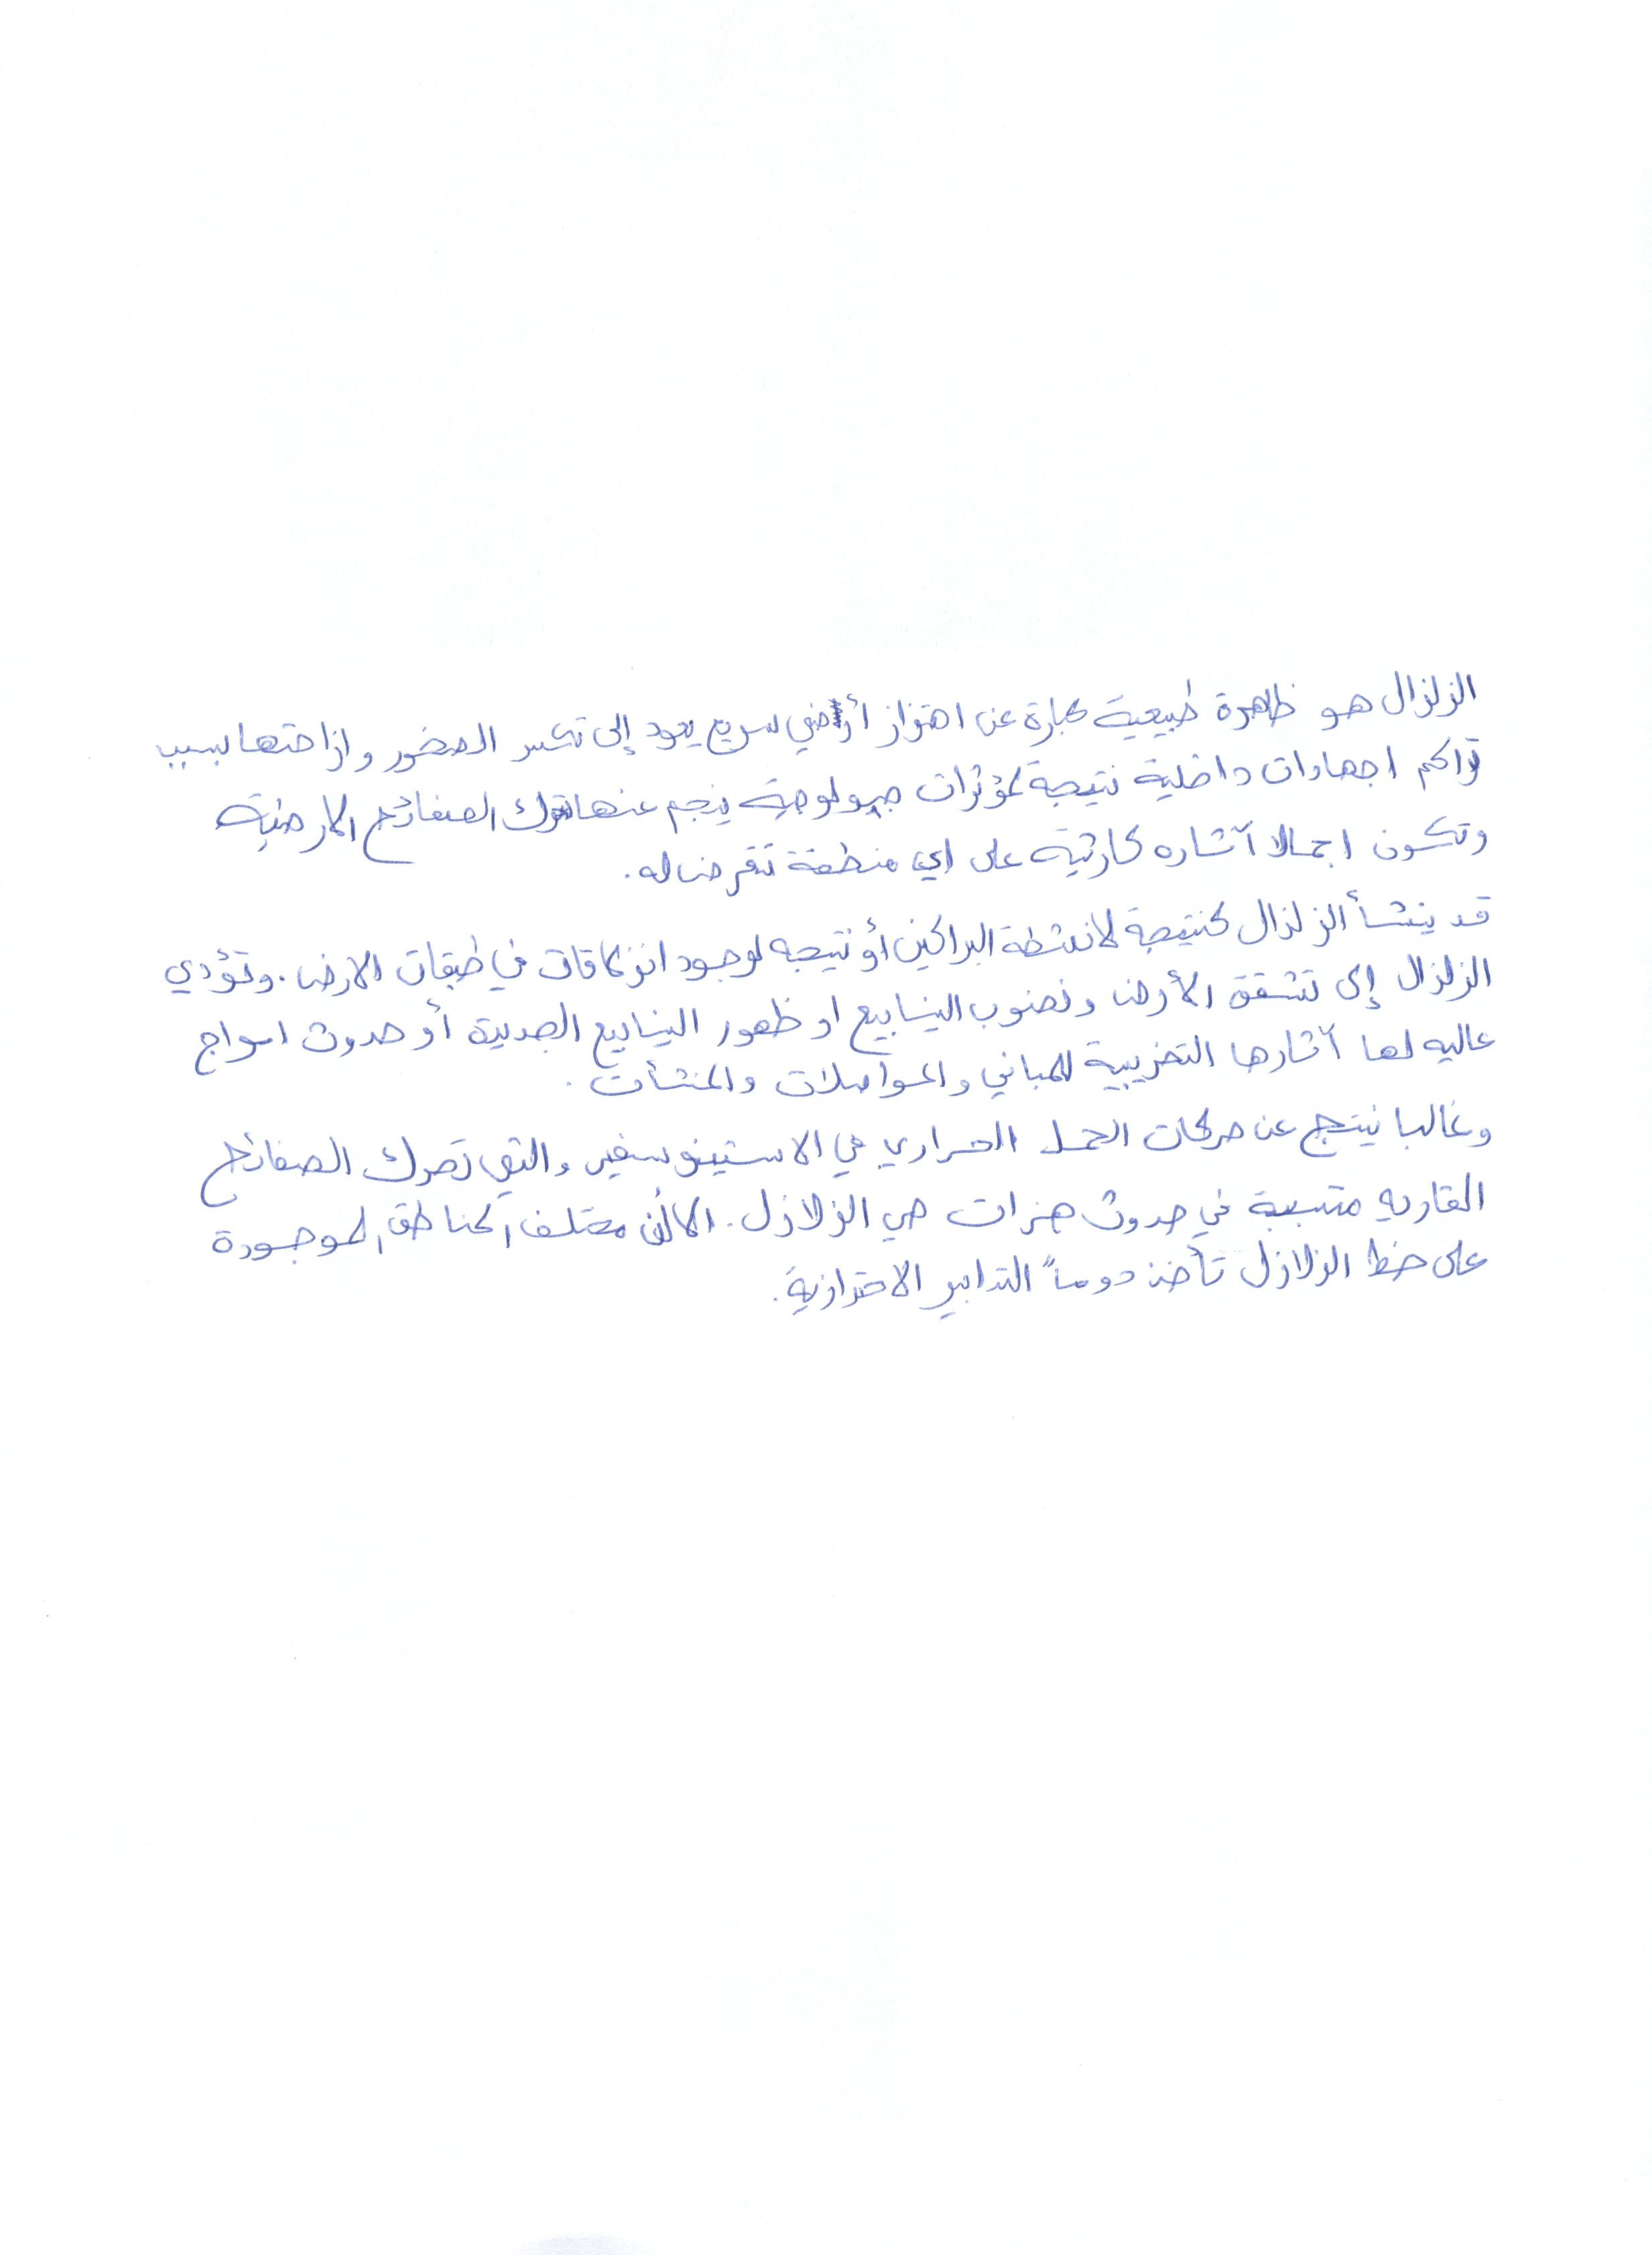 الزلزال هو ظاهرة طبيعية عبارة عن اهتزاز أرضي سريع يعود إلى تكسر الصخور وازاحتها بسبب
تراكم اجهادات داخلية نتيجة لمؤثرات جيولوجية ينجم عنها تحرك الصفائح الارضية
وتكون اجمالا آثاره كارثية على اي منطقة تتعرض له .
قد ينشأ الزلزال كنتيجة لانشطة البراكين أو نتيجه لوجود انزلاقات في طبقات الارض . وتؤدي
الزلزال إلى تشقق الأرض ونضوب الينابيع او ظهور الينابيع الجديدة أو حدوث امواج
عاليه لها آثارها التخريبية للمباني والمواصلات والمنشأت .
وغالبا ينتج عن حركات الحمل الحراري في الاستينوسفير والتي تحرك الصفائح
القاريه متسببة في حدوث هزات هي الزلازل . الا أن مختلف المناطق الموجودة
على خط الزلازل تأخذ دوماً التدابير الاحترازية .